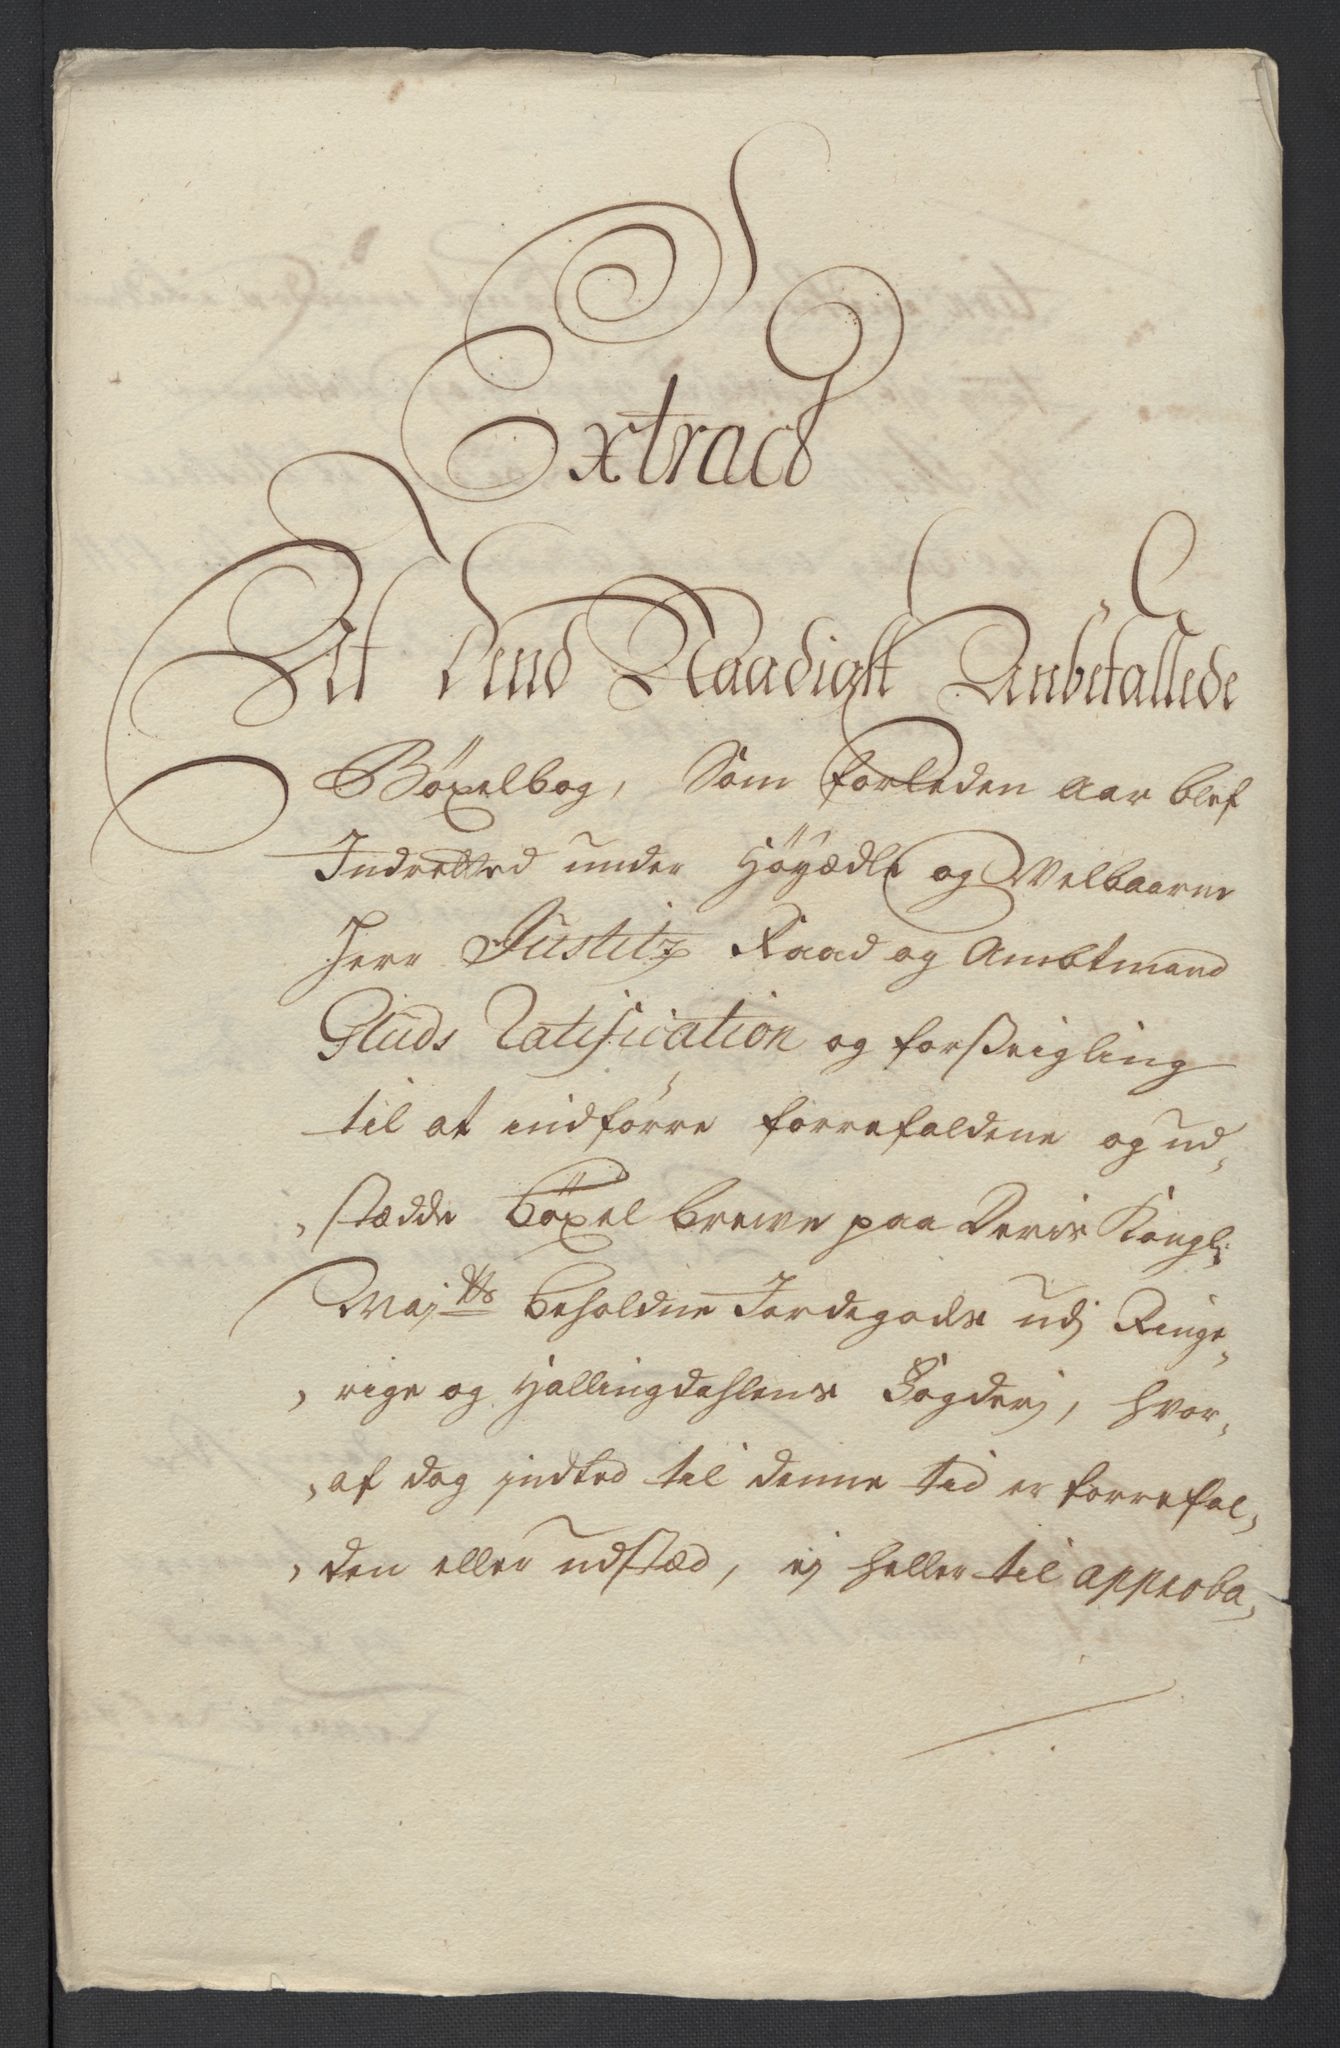 Extract
Af dend Naadigst Anbefallede
Böxelbog, Som forleden Aar blef
Indretted under Höÿædle og Velbaarne
Herr Justitz Raad og Ambtmand
Gluds Ratification og forseigling
til at indförre forrefaldene og ud,
,stædde Böxel breve paa Deris Kongl:
May:tts beholdne Jordegods udj Ringe,
,rige og Hallingdahlens Fogderj, hvor,
,af dog indted til denne tid er forrefal,
,den eller udstæd, ej heller til approba,